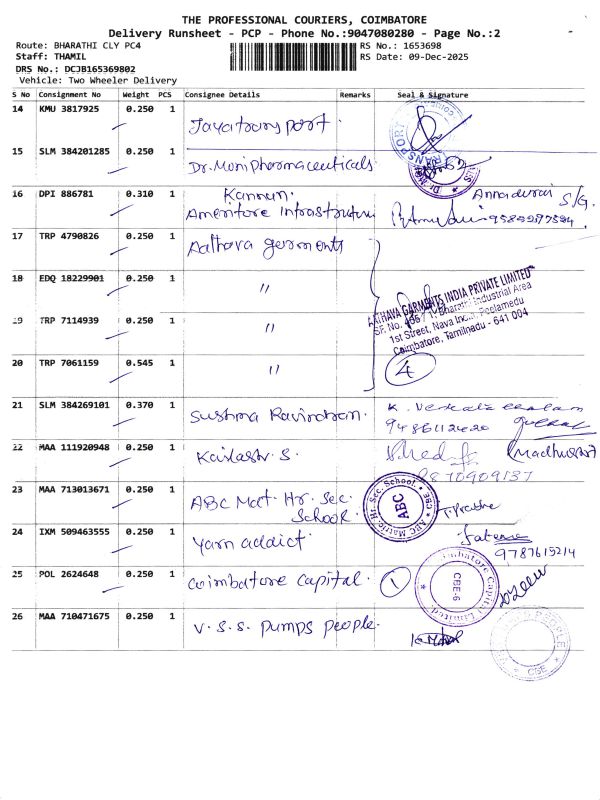 THE PROFESSIONAL COURIERS, COIMBATORE
Delivery Runsheet - PCP - Phone No.:9047080280 - Page No.:2
Route: BHARATHI CLY PC4 RS No.: 1653698
Staff: THAMIL RS Date: 09-Dec-2025
DRS No.: DCJB165369802
Vehicle: Two Wheeler Delivery
S No Consignment No Weight PCS Consignee Details Remarks Seal & Signature
14 KMU 3817925 0.250 1 Jayatransport.
15 SLM 384201285 0.250 1 Dr. Moni Pharmaceuticals
16 DPI 886781 0.310 1 Kannan. Annadurai S/G.
17 TRP 4790826 0.250 1 Aathava germents
18 EDQ 18229901 0.250 1 "
AATHAVA GARMENTS INDIA PRIVATE LIMITED
1st Street, Nava India, Peelamedu
Coimbatore, Tamilnadu - 641 004
19 TRP 7114939 0.250 1 "
20 TRP 7061159 0.545 1 " 4
21 SLM 384269101 0.370 1 Sushma Ravindran.
9486112420
22 MAA 111920948 0.250 1 Kailash. S.
8870909137
23 MAA 713013671 0.250 1 ABC Mat. Hr. Sec. School.
ABC Mat. Hr. Sec. School CBE
ABC
24 IXM 509463555 0.250 1 yarn addict.
9787615214
25 POL 2624648 0.250 1 Coimbatore capital. 1
Coimbatore Capital Limited
CBE-6
26 MAA 710471675 0.250 1 V. S. S. pumps people.
CBE